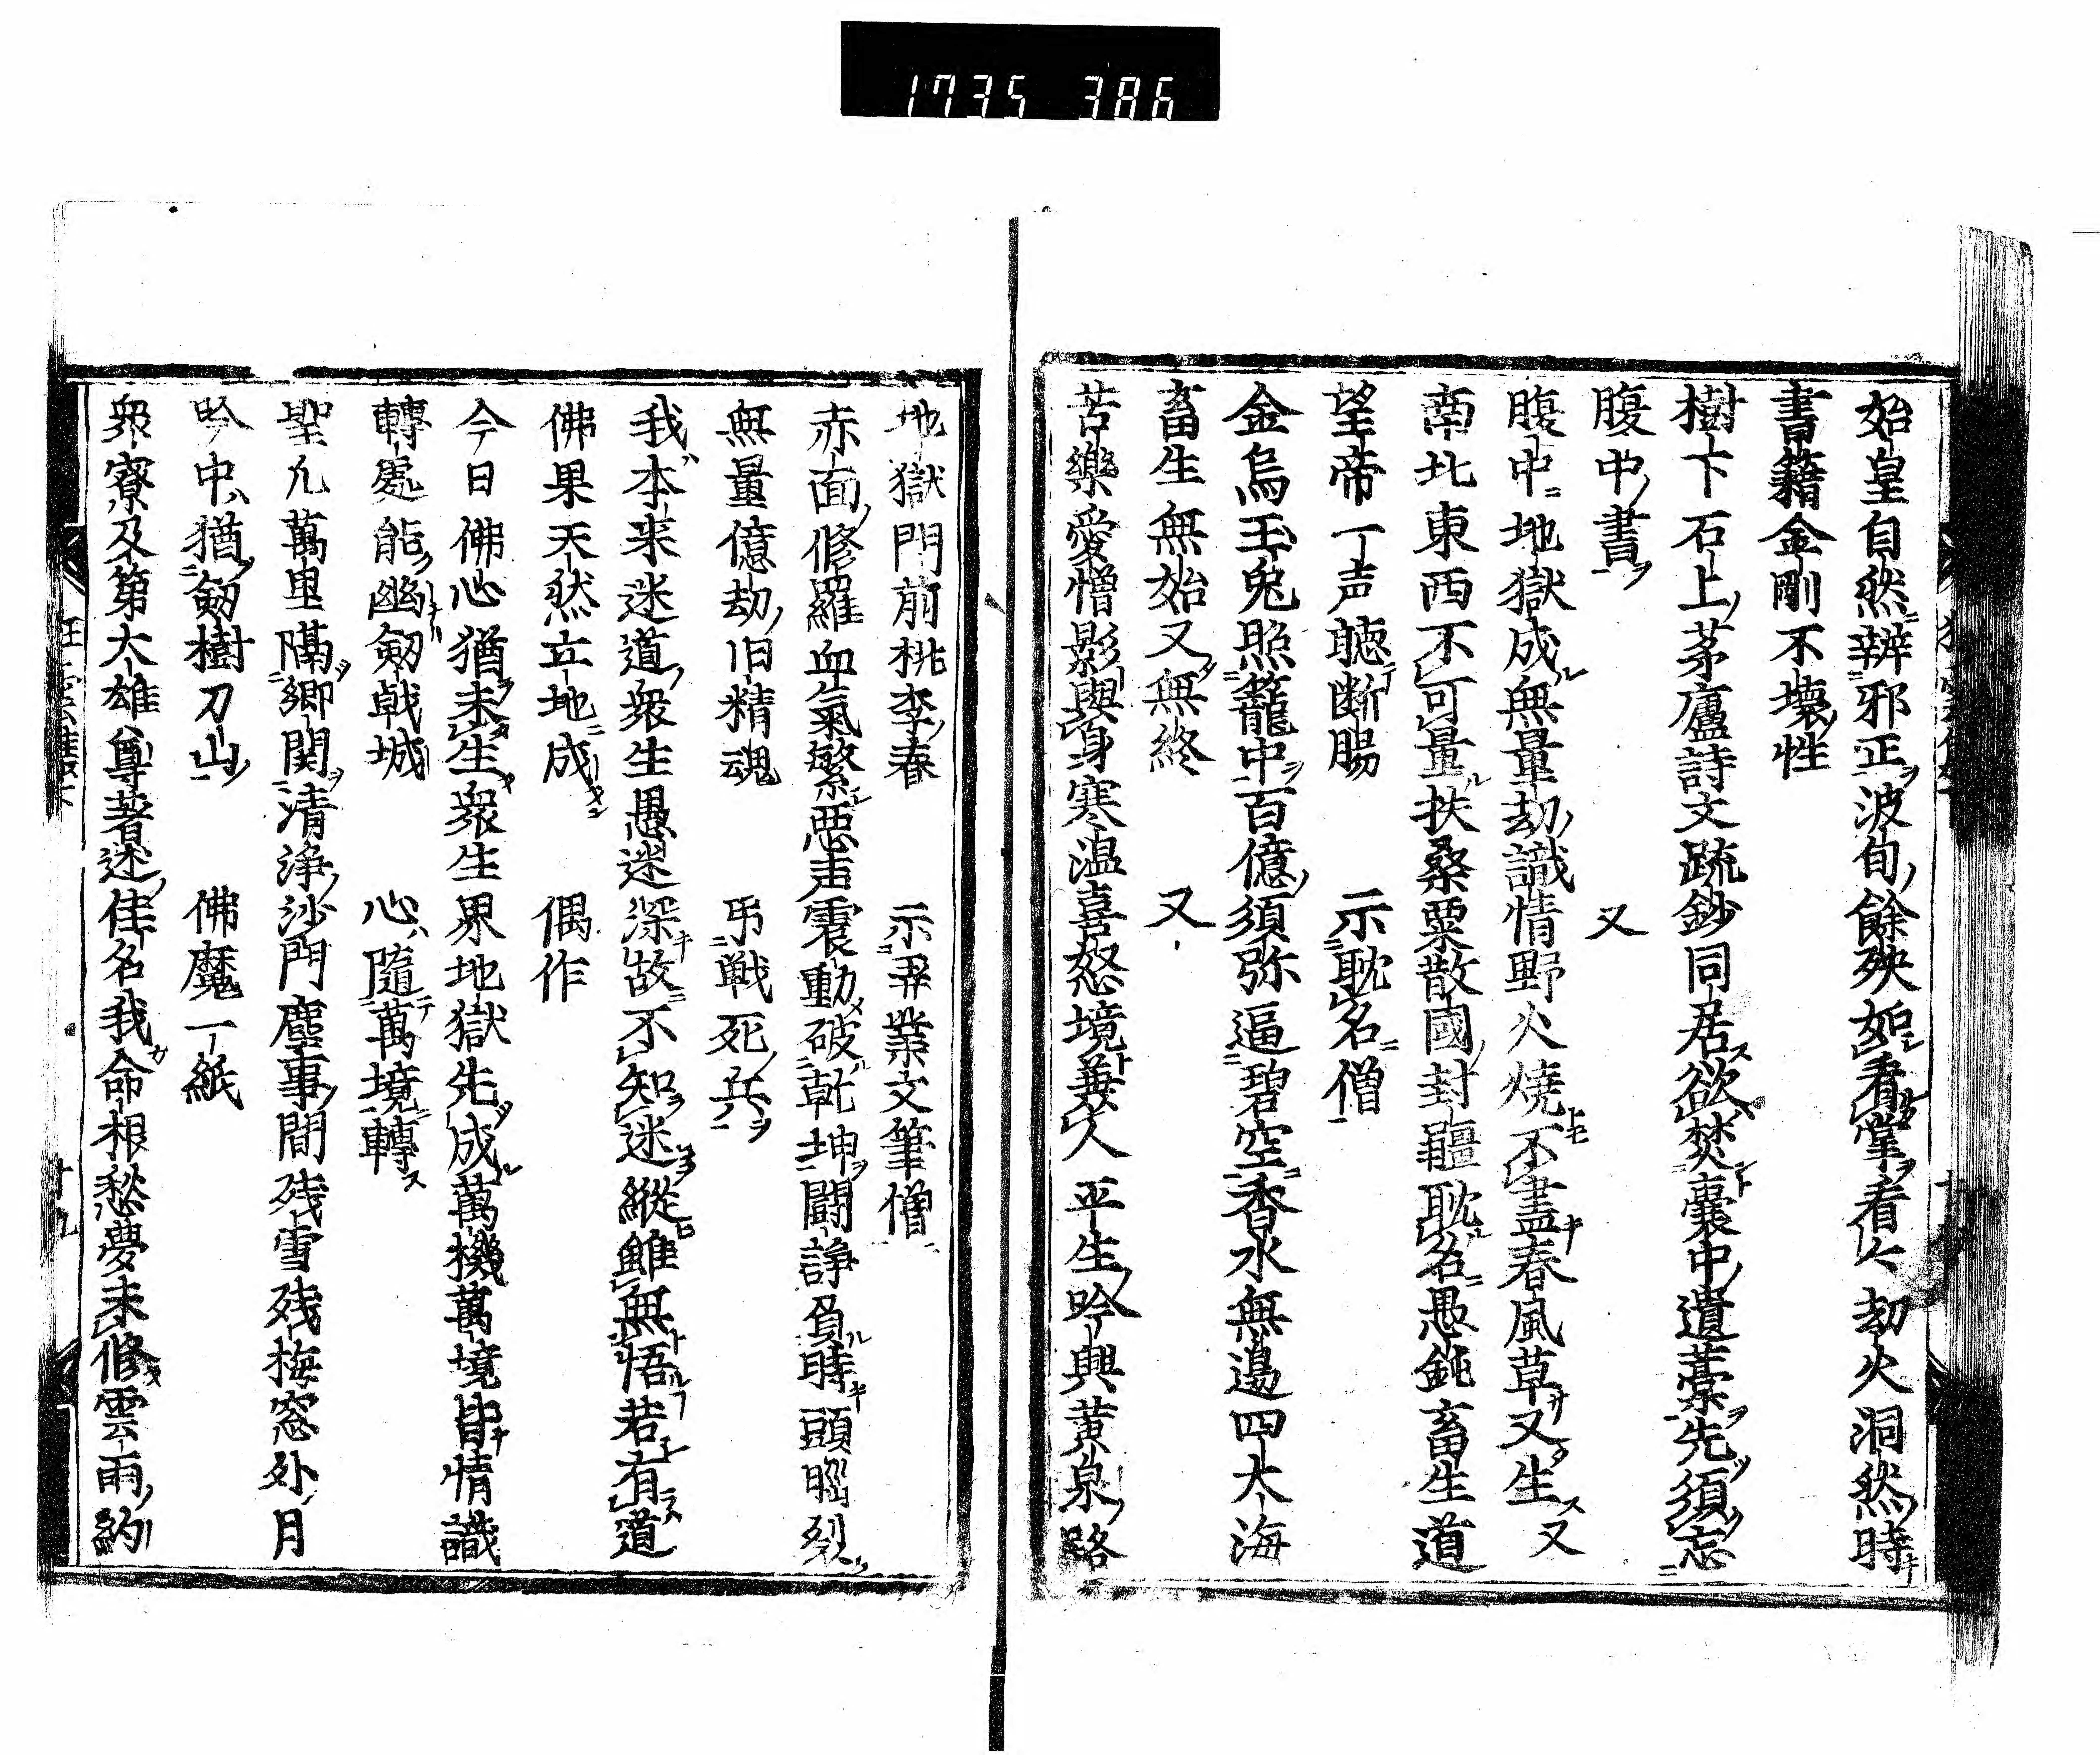 1735 386
始皇自然辨邪正波旬餘殃如看掌看々劫火洞然時
書籍金剛不壊性
樹下石上茅廬詩文疏鈔同居欲焚囊中遺藁先須忘
腹中書 又
腹中地獄成無量劫識情野火燒不盡春風草又生又
南北東西不可量扶桑粟散國封疆耽名愚鈍畜生道
望帝一声聴断腸 示耽名僧
金烏玉兔照籠中百億須弥逼碧空香水無邊四大海
畜生無始又無終 又
苦樂愛憎影與身寒温喜怒境兼人平生吟興黄泉路
地獄門前桃李春 示弄業文筆僧
赤面修羅血氣繁惡声震動破乾坤闘諍負時頭腦裂
無量億劫旧精魂 弔戦死兵
我本来迷道衆生愚迷深故不知迷縱雖無悟若有道
佛果天然立地成 偶作
今日佛心猶未生衆生界地獄先成萬機萬境皆情識
轉處能幽劔戟城 心隨萬境轉
聖凢萬里隔卿関清浄沙門塵事間残雪残梅窓外月
吟中猶劔樹刀山 佛魔一紙
衆寮及第大雄尊著述佳名我命根愁夢未修雲雨約